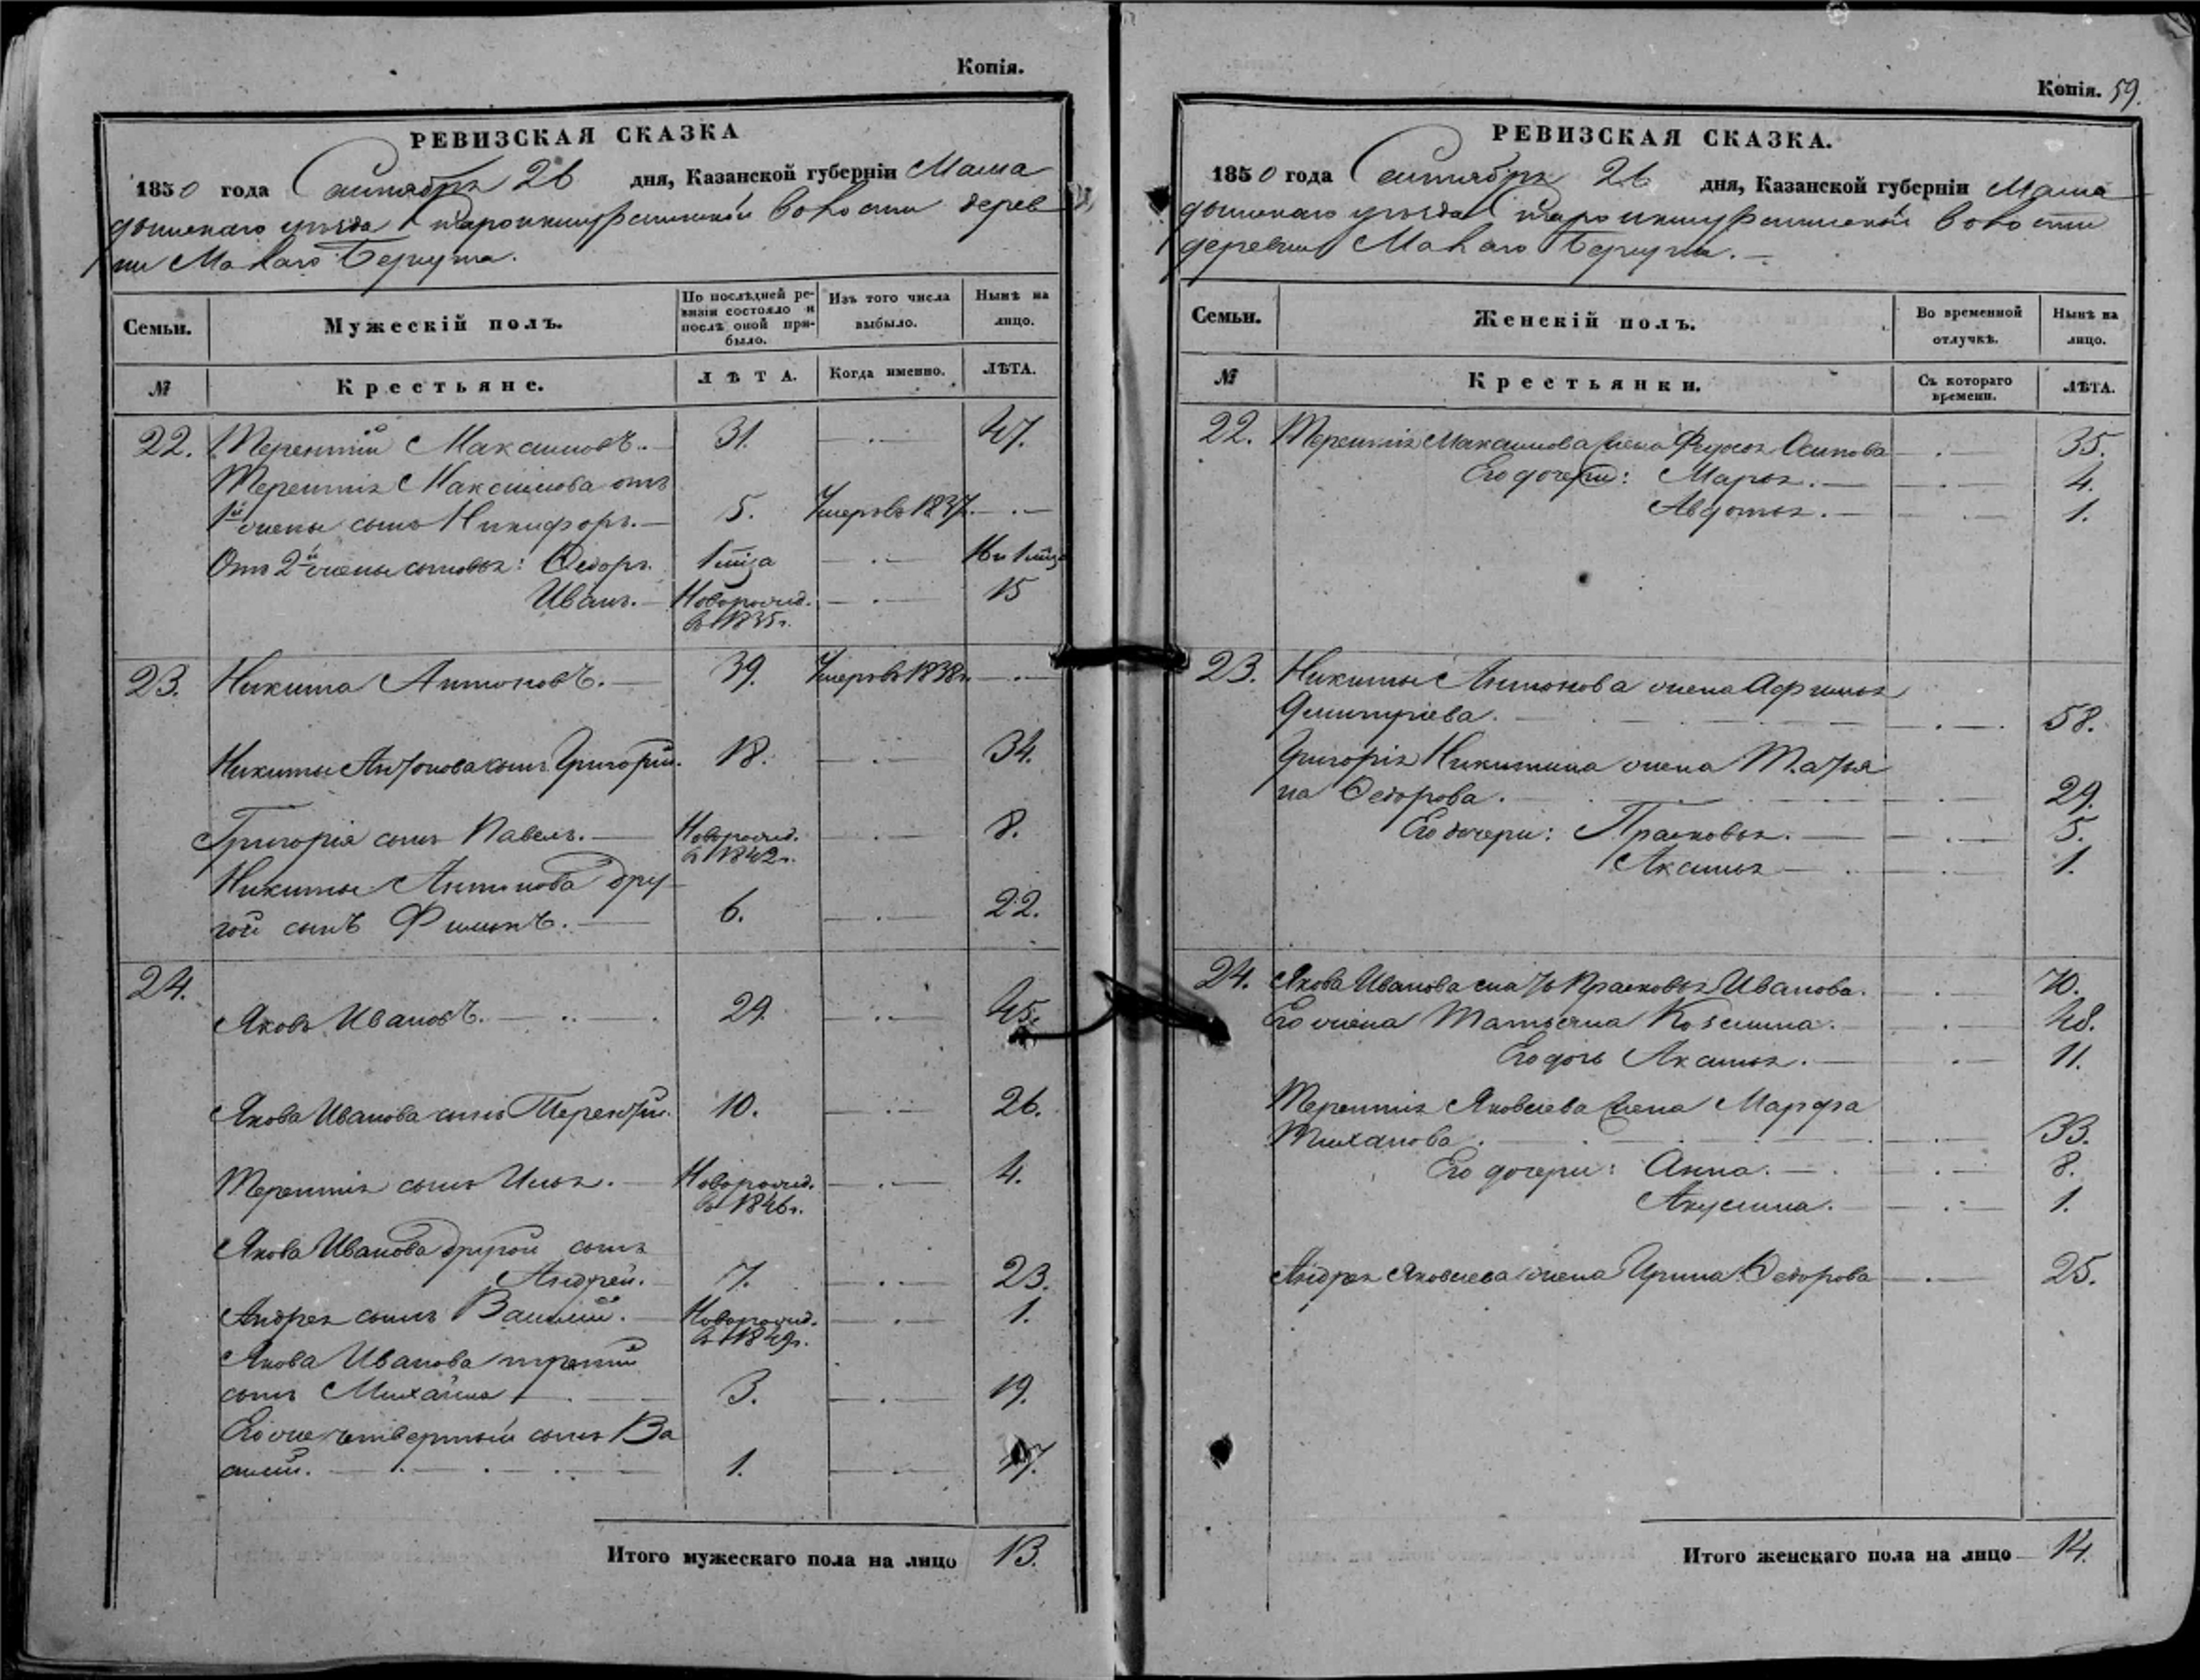 Копія.
РЕВИЗСКАЯ СКАЗКА
1850 года Сентября 26 дня, Казанской губерніи Мама
дышскаго уѣзда волости дерев
ни Малаго Беркута.
Семьи.
Мужескій полъ.
По послѣдней ре-
визіи состояло и
послѣ оной при-
было.
Изъ того числа
выбыло.
Нынѣ на
лицо.
№
Крестьяне.
ЛѢТА.
Когда именно.
ЛѢТА.
22. Терентій Максимовъ.— 31. — 47.
Терентія Максимова отъ
1й жены сынъ Никифоръ.— 5. Умеръ въ 1837. —
Отъ 2й жены сыновья: Ѳедоръ. 1 міца — 16 и 1 міца
Иванъ.— Новорожд. — 15
въ 1835г.
23. Никита Антоновъ.— 39. Умеръ въ 1838г. —
Никиты Антонова сынъ Григорій. 18. — 34.
Григорія сынъ Павелъ.— Новорожд. — 8.
въ 1842г.
Никиты Антонова дру
гой сынъ Филипъ.— 6. — 22.
24.
Яковъ Ивановъ.— 29. — 45.
Якова Иванова сынъ Терентій. 10. — 26.
Терентія сынъ Илья.— Новорожд. — 4.
въ 1846г.
Якова Иванова другой сынъ
Андрей. 7. — 23.
Андрея сынъ Василій.— Новорожд. — 1.
въ 1849г.
Якова Иванова третій
сынъ Михайла — 3. — 19.
Его же четвертый сынъ Ва
силій.— 1. — 17.
Итого мужескаго пола на лицо 13.
Копія. 59.
РЕВИЗСКАЯ СКАЗКА.
1850 года Сентября 26 дня, Казанской губерніи Мама
дышскаго уѣзда волости
деревни Малаго Беркута.—
Семьи.
Женскій полъ.
Во временной
отлучкѣ.
Нынѣ на
лицо.
№
Крестьянки.
Съ котораго
времени.
ЛѢТА.
22. Терентія Максимова жена Федосья Осипова — 35.
Его дочери: Марья.— — 4.
Авдотья.— — 1.
23. Никиты Антонова жена Афимья
Дмитріева.— — 58.
Григорія Никитина жена Татья
на Ѳедорова.— — 29.
Его дочери: Прасковья.— — 5.
Аксинья— — 1.
24. Якова Иванова мать Прасковья Иванова. — 70.
Его жена Татьяна Козмина.— — 48.
Его дочь Аксинья.— — 11.
Терентія Яковлева жена Марфа
Тиханова.— — 33.
Его дочери: Анна.— — 8.
Акулина.— — 1.
Андрея Яковлева жена Ирина Ѳедорова — 25.
Итого женскаго пола на лицо 14.